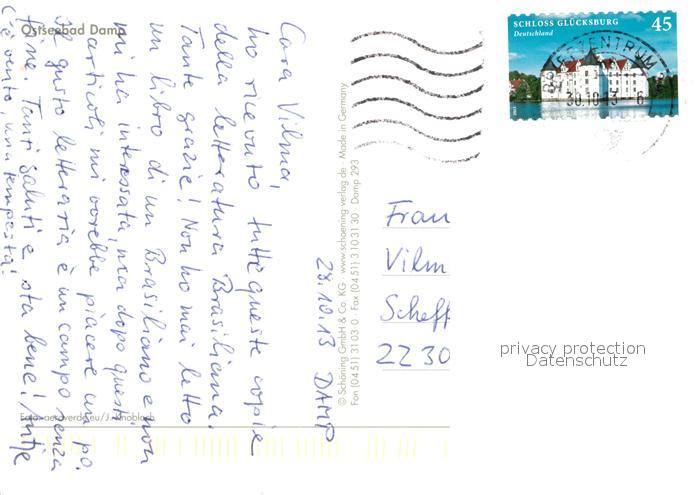 Ostseebad Damp
Cara Vilma,
ho ricevuto tutte queste copie
della letteratura Brasiliana.
Tante grazie! Non ho mai letto
un libro di un Brasiliano e non
mi ha interessata, ma dopo questi
articoli mi vorebbe piacere un po.
Il gusto letteraria è un campo senza
fine. Tanti saluti e sta bene! Antje
C'è vento, una tempesta!
28.10.13 DAMP
© Schöning GmbH & Co. KG · www.schoening-verlag.de · Made in Germany
Fon (04 51) 31 03 0 · Fax (04 51) 3 10 31 30 · Damp 293
Foto: aeroverde.eu/J. Knobloch
SCHLOSS GLÜCKSBURG 45
Deutschland
BRIEFZENTRUM
30.10.13-6
Frau
Vilm
Scheff
22 30
privacy protection
Datenschutz